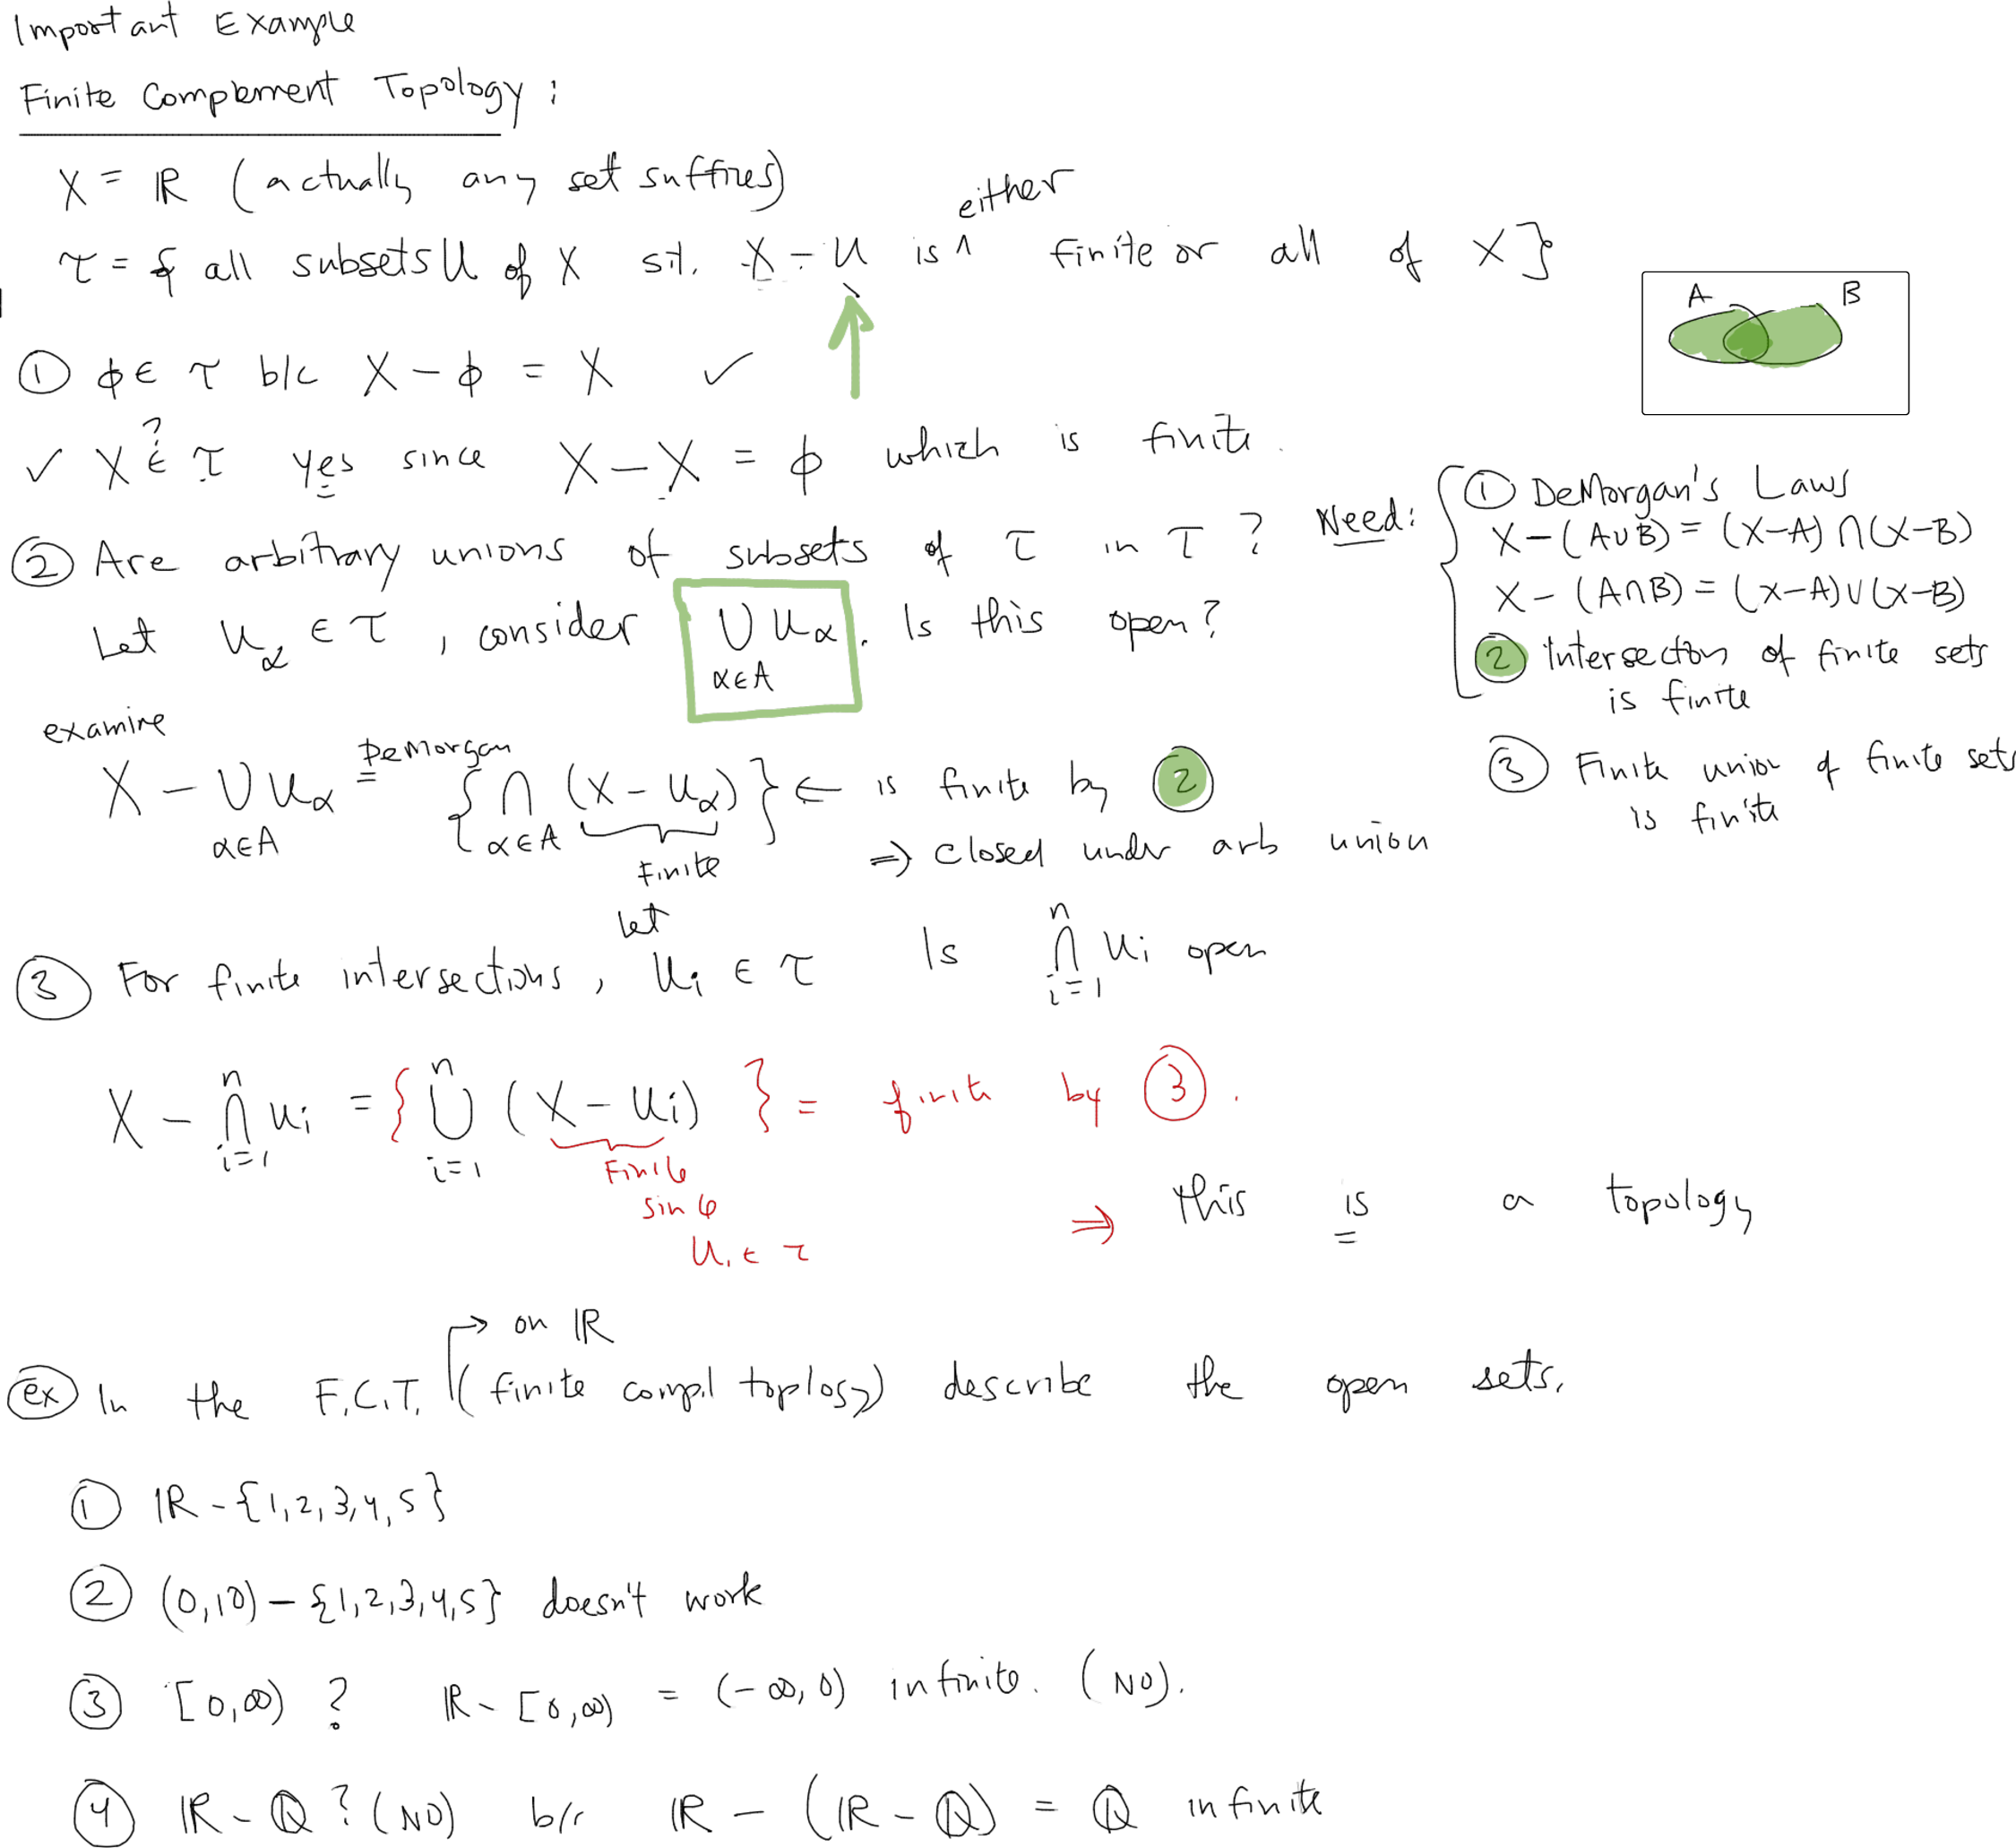 Important Example
Finite Complement Topology:
X = ℝ (actually any set suffices)
either
τ = { all subsets U of X s.t. X - U is ^ finite or all of X }
A B
① ϕ ∈ τ b/c X - ϕ = X ✓
✓ X ?∈ τ yes since X - X = ϕ which is finite.
② Are arbitrary unions of subsets of τ in τ ?
Let U_α ∈ τ, consider ∪_{α∈A} U_α. Is this open?
Need:
① DeMorgan's Laws
X - (A∪B) = (X-A) ∩ (X-B)
X - (A∩B) = (X-A) ∪ (X-B)
② Intersection of finite sets
is finite
③ Finite union of finite sets
is finite
examine
X - ∪_{α∈A} U_α = DeMorgan { ∩_{α∈A} (X - U_α) } ← is finite by ②
Finite
⇒ closed under arb union
let
③ For finite intersections, U_i ∈ τ Is ∩_{i=1}^n U_i open
X - ∩_{i=1}^n U_i = { ∪_{i=1}^n (X - U_i) } = finite by ③.
Finite
since
U_i ∈ τ
⇒ this is a topology
→ on ℝ
ex In the F.C.T. (finite compl toplogy) describe the open sets.
① ℝ - {1,2,3,4,5}
② (0,10) - {1,2,3,4,5} doesn't work
③ [0,∞) ? ℝ - [0,∞) = (-∞,0) infinite. (NO).
④ ℝ - ℚ ? (NO) b/c ℝ - (ℝ - ℚ) = ℚ infinite